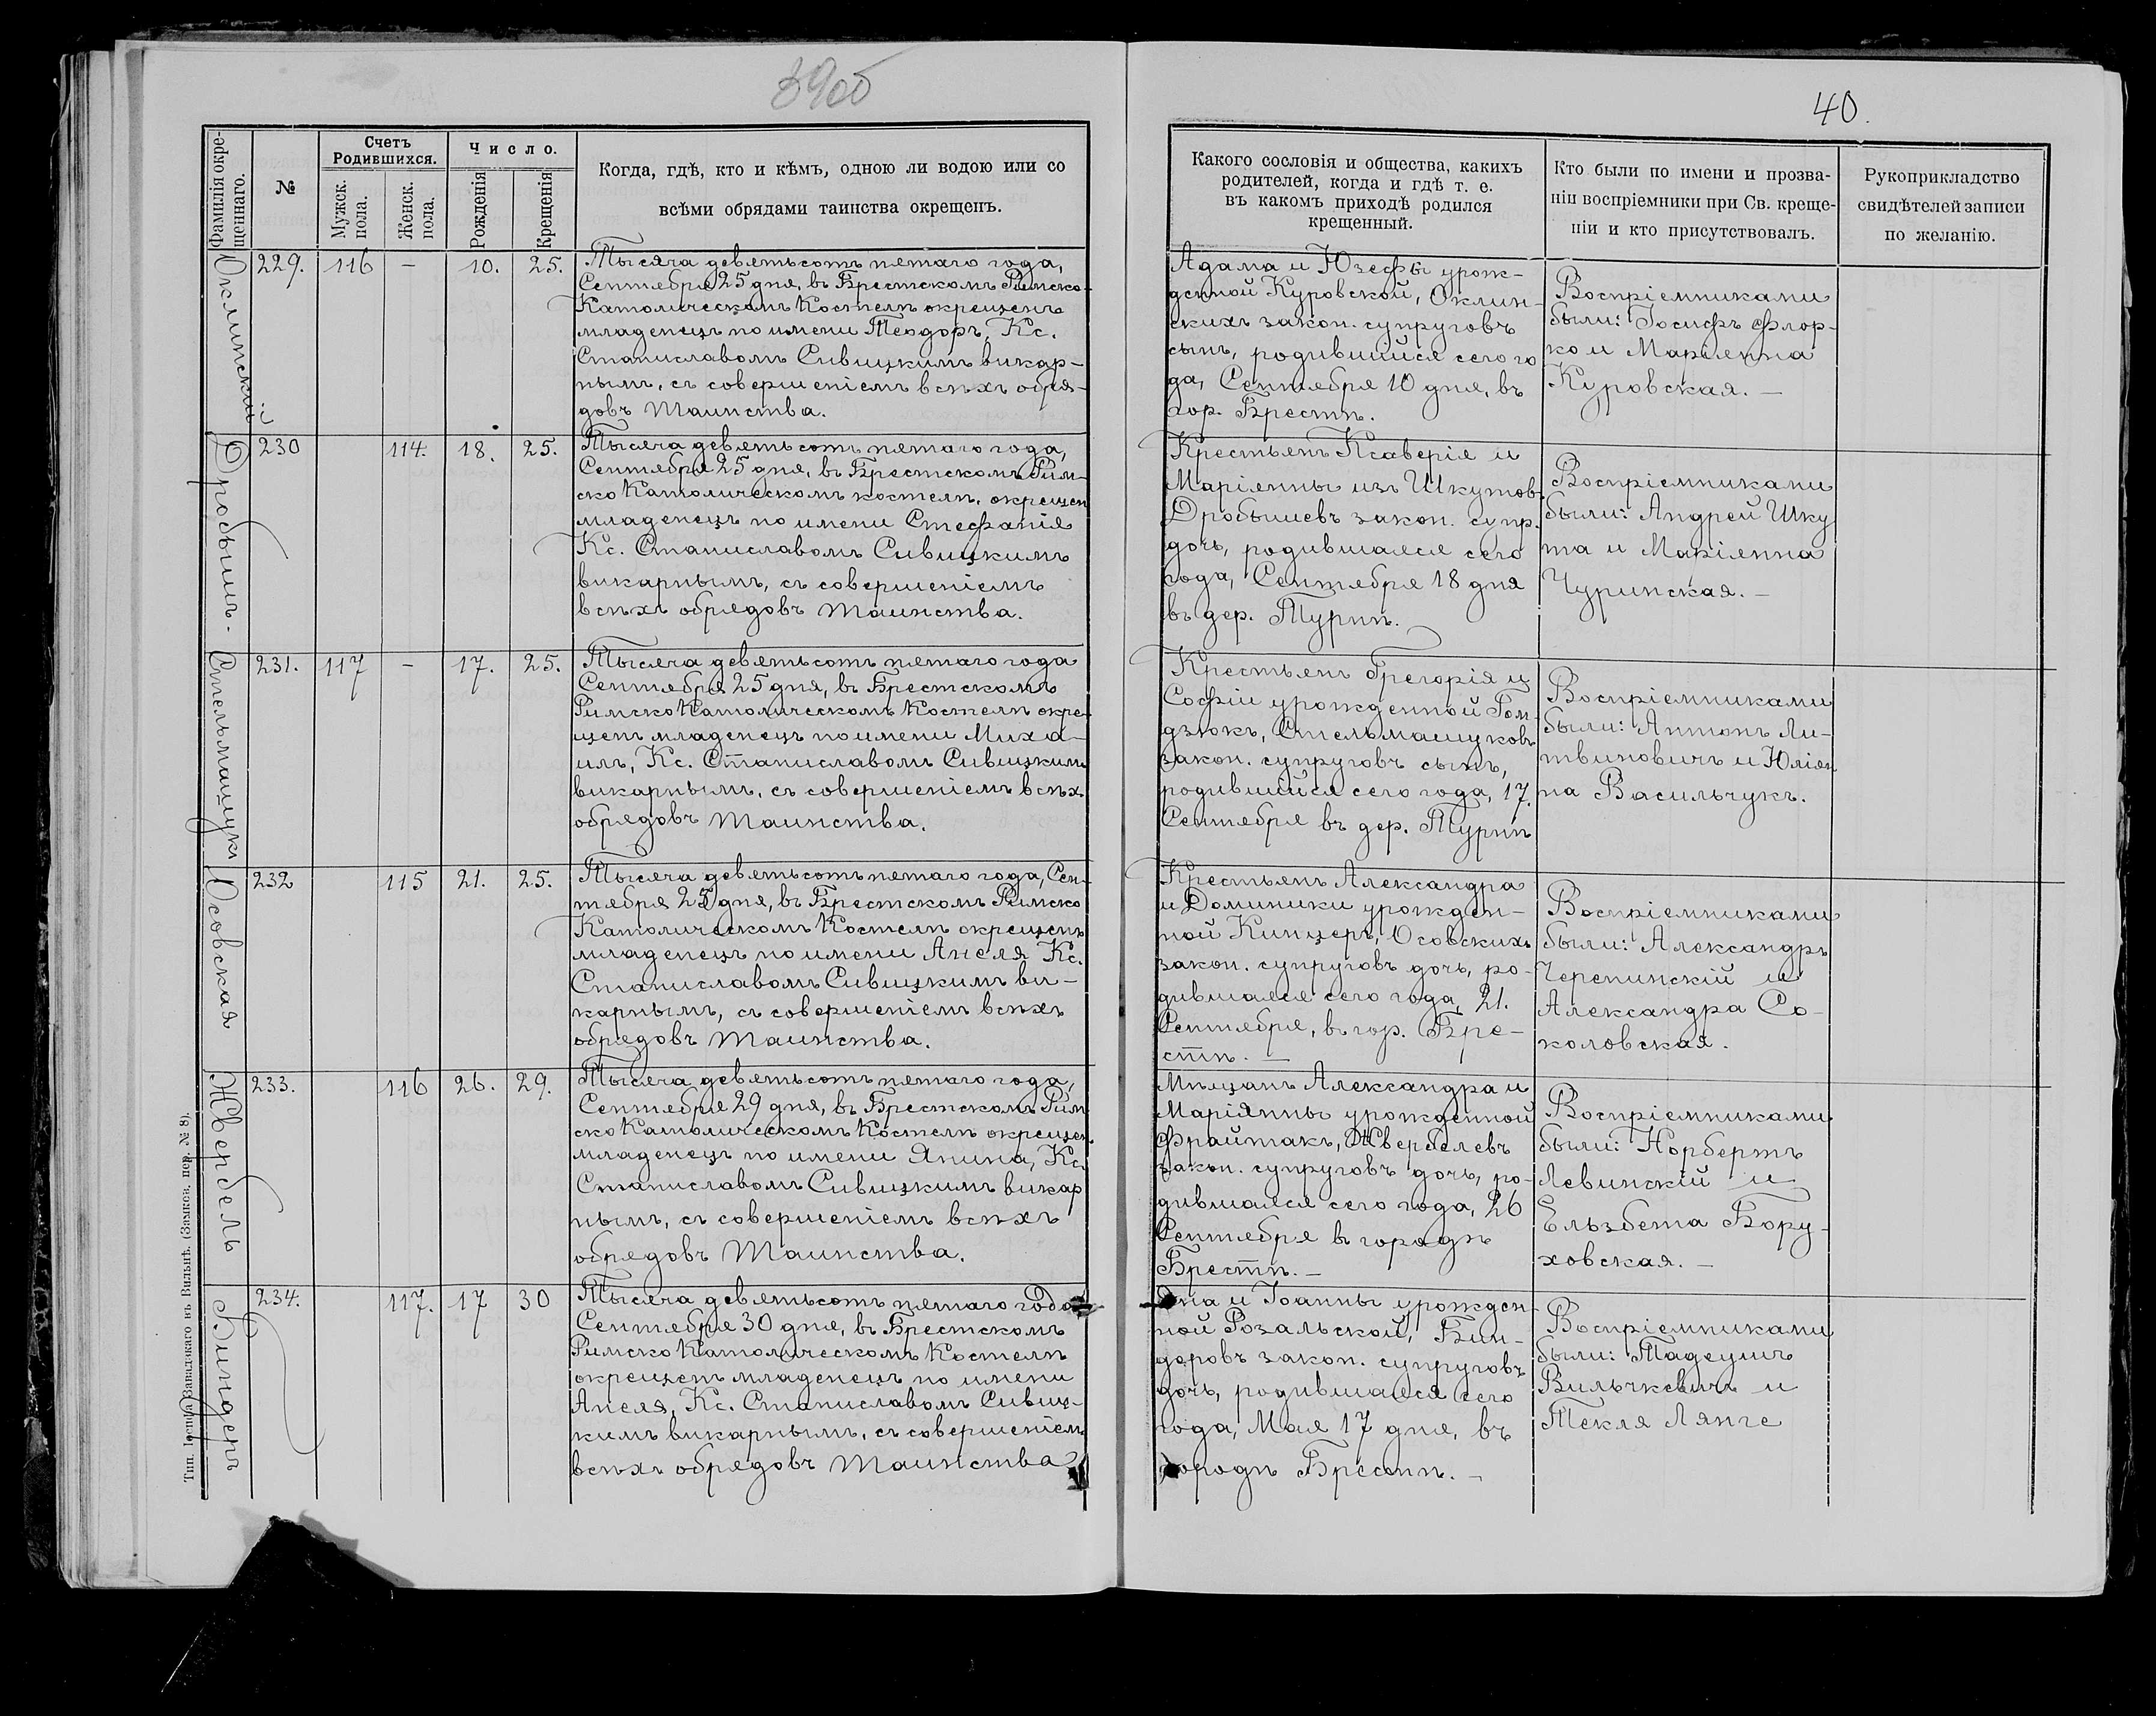 39об
40.
Фамилія окре-
щеннаго.
№
Счетъ
Родившихся.
Мужск.
пола.
Женск.
пола.
Число.
Рожденія
Крещенія
Когда, гдѣ, кто и кѣмъ, одною ли водою или со
всѣми обрядами таинства окрещенъ.
Какого сословія и общества, какихъ
родителей, когда и гдѣ т. е.
въ какомъ приходѣ родился
крещенный.
Кто были по имени и прозва-
ніи воспріемники при Св. креще-
ніи и кто присутствовалъ.
Рукоприкладство
свидѣтелей записи
по желанію.
Оклинскій
229. 116 — 10. 25.
Тысяча девятьсотъ пятаго года,
Сентября 25 дня, въ Брестскомъ Римско-
Католическомъ Костелѣ окрещенъ
младенецъ по имени Теодоръ, Кс.
Станиславомъ Сивицкимъ викар-
нымъ, съ совершеніемъ всѣхъ обря-
довъ Таинства.
Адама и Юзефы урож-
денной Куровской, Оклин-
скихъ закон. супруговъ
сынъ, родившійся сего го
да, Сентября 10 дня, въ
гор. Брестѣ.
Воспріемниками
были: Іосифъ Флор-
ко и Маріянна
Куровская. —
Дробышъ.
230 114. 18. 25.
Тысяча девятьсотъ пятаго года,
Сентября 25 дня, въ Брестскомъ Рим-
ско Католическомъ костелѣ, окрещен
младенецъ по имени Стефанія
Кс. Станиславомъ Сивицкимъ
викарнымъ, съ совершеніемъ
всѣхъ обрядовъ Таинства.
Крестьянъ Ксаверія и
Маріянны изъ Шкутов
Дробышевъ закон. супр.
дочь, родившаяся сего
года, Сентября 18 дня
въ дер. Турнѣ.
Воспріемниками
были: Андрей Шку
та и Маріянна
Чуринская. —
Стельмащукъ
231. 117 — 17. 25.
Тысяча девятьсотъ пятаго года
Сентября 25 дня, въ Брестскомъ
Римско Католическомъ Костелѣ окре-
щенъ младенецъ по имени Миха-
илъ, Кс. Станиславомъ Сивицкимъ
викарнымъ, съ совершеніемъ всѣхъ
обрядовъ Таинства.
Крестьянъ Грегорія и
Софіи урожденной Гом-
дзюкъ, Стельмащуковъ
закон. супруговъ сынъ,
родившійся сего года, 17.
Сентября въ дер. Турнѣ
Воспріемниками
были: Антонъ Ли-
твиновичъ и Юліан
на Васильчукъ.
Осовская
232 115 21. 25.
Тысяча девятьсотъ пятаго года, Сен-
тября 25 дня, въ Брестскомъ Римско
Католическомъ Костелѣ окрещенъ
младенецъ по имени Анеля Кс.
Станиславомъ Сивицкимъ ви-
карнымъ, съ совершеніемъ всѣхъ
обрядовъ Таинства.
Крестьянъ Александра
и Доминики урожден-
ной Кинцеръ, Осовскихъ
закон. супруговъ дочь, ро-
дившаяся сего года, 21.
Сентября, въ гор. Бре-
стѣ. —
Воспріемниками
были: Александръ
Черепинскій и
Александра Со-
коловская.
Жвербель
233. 116 26. 29.
Тысяча девятьсотъ пятаго года,
Сентября 29 дня, въ Брестскомъ Рим
ско Католическомъ Костелѣ окрещен
младенецъ по имени Янина, Кс.
Станиславомъ Сивицкимъ викар
нымъ, съ совершеніемъ всѣхъ
обрядовъ Таинства.
Мѣщанъ Александра и
Маріянны урожденной
Фрайтакъ, Жвербелевъ
закон. супруговъ дочь, ро-
дившаяся сего года, 26
Сентября въ городѣ
Брестѣ. —
Воспріемниками
были: Норбертъ
Левинскій и
Ельзбета Бору-
ховская. —
Биндеръ
234. 117. 17 30
Тысяча девятьсотъ пятаго года,
Сентября 30 дня, въ Брестскомъ
Римско Католическомъ Костелѣ
окрещенъ младенецъ по имени
Анеля, Кс. Станиславомъ Сивиц-
кимъ викарнымъ, съ совершеніемъ
всѣхъ обрядовъ Таинства
и Іоанны урожден
ной Розальской, Бин-
деровъ закон. супруговъ
дочь, родившаяся сего
года, Мая 17 дня, въ
городѣ Брестѣ. —
Воспріемниками
были: Тадеушъ
Вильчкевичъ и
Текля Лянге
Тип. Іосифа Завадзкаго въ Вильнѣ. (Замков. пер. № 8).